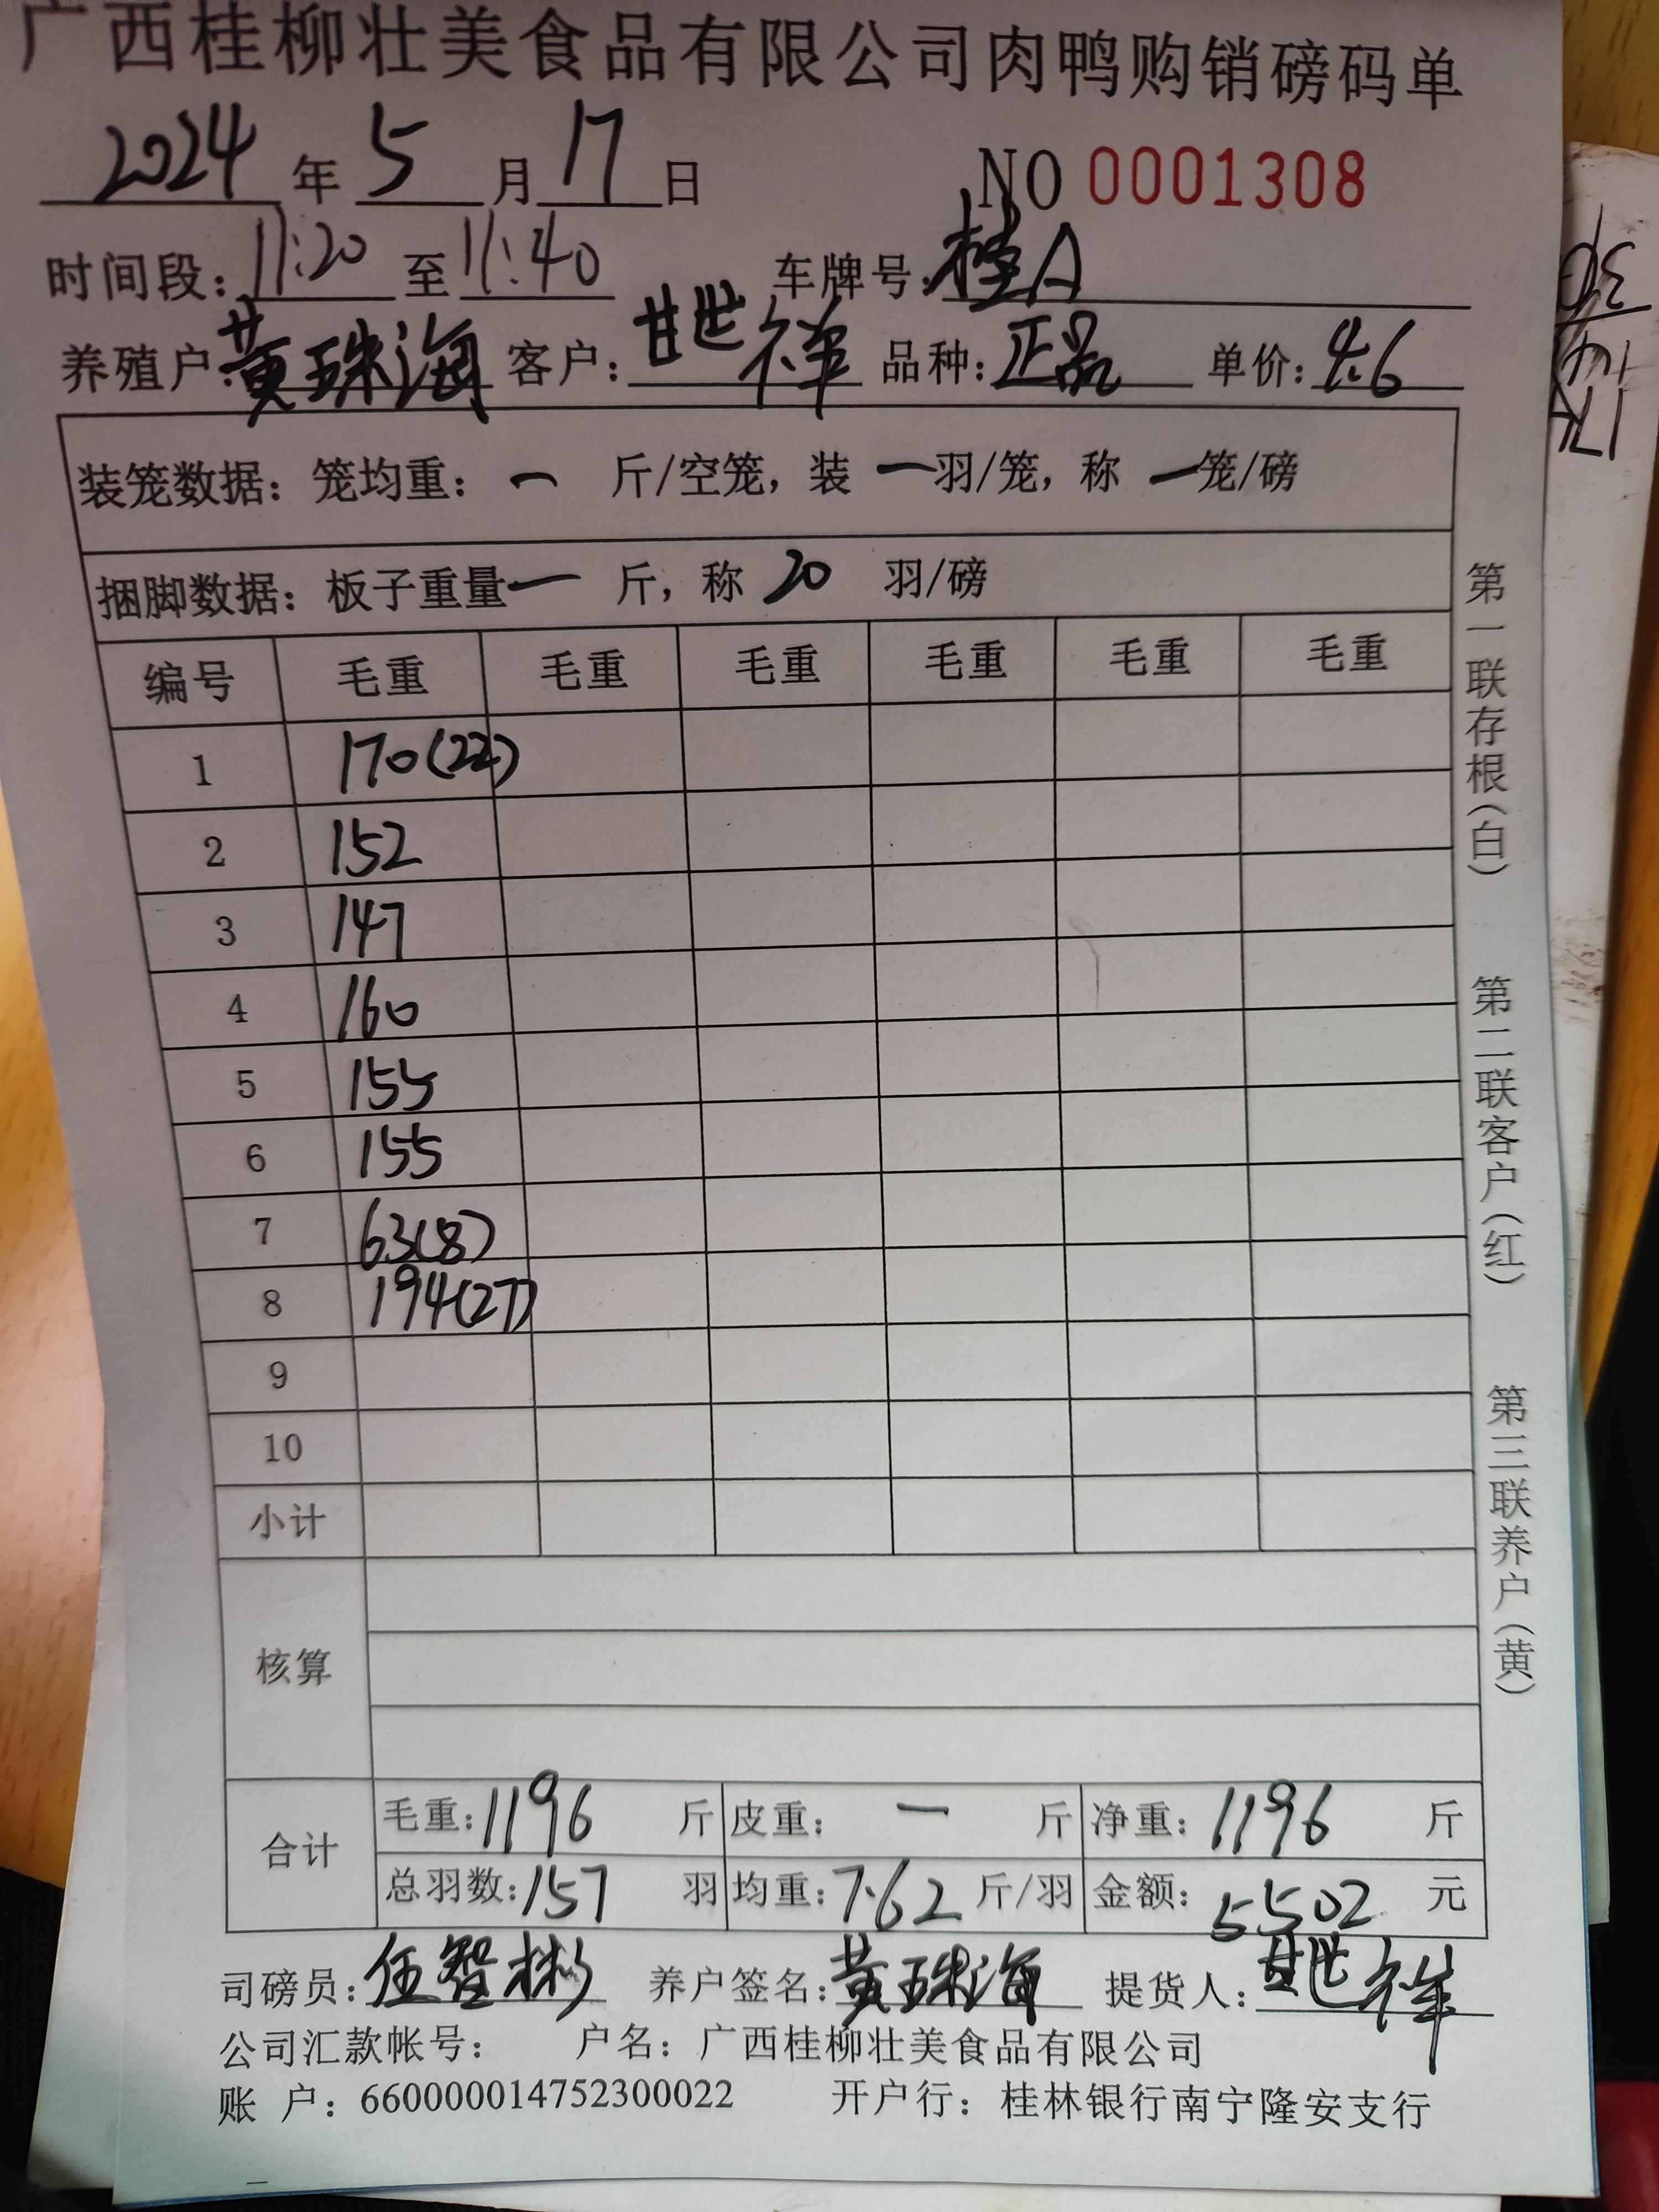 广西桂柳壮美食品有限公司肉鸭购销磅码单
2024年5月17日 NO 0001308
时间段：11:20至11:40 车牌号：桂A
养殖户：黄珠海 客户：甘世祥 品种：正品 单价：4.6
装笼数据：笼均重：一 斤/空笼，装 一羽/笼，称 一笼/磅
捆脚数据：板子重量一 斤，称 20 羽/磅
编号 毛重 毛重 毛重 毛重 毛重 毛重
1 170(22)
2 152
3 147
4 160
5 155
6 155
7 63(8)
8 194(27)
9
10
小计
核算
合计 毛重：1196 斤 皮重：一 斤 净重：1196 斤
总羽数：157 羽 均重：7.62 斤/羽 金额：5502 元
司磅员：伍智彬 养户签名：黄珠海 提货人：甘世祥
公司汇款帐号： 户名：广西桂柳壮美食品有限公司
账 户：660000014752300022 开户行：桂林银行南宁隆安支行
第一联存根（白） 第二联客户（红） 第三联养户（黄）